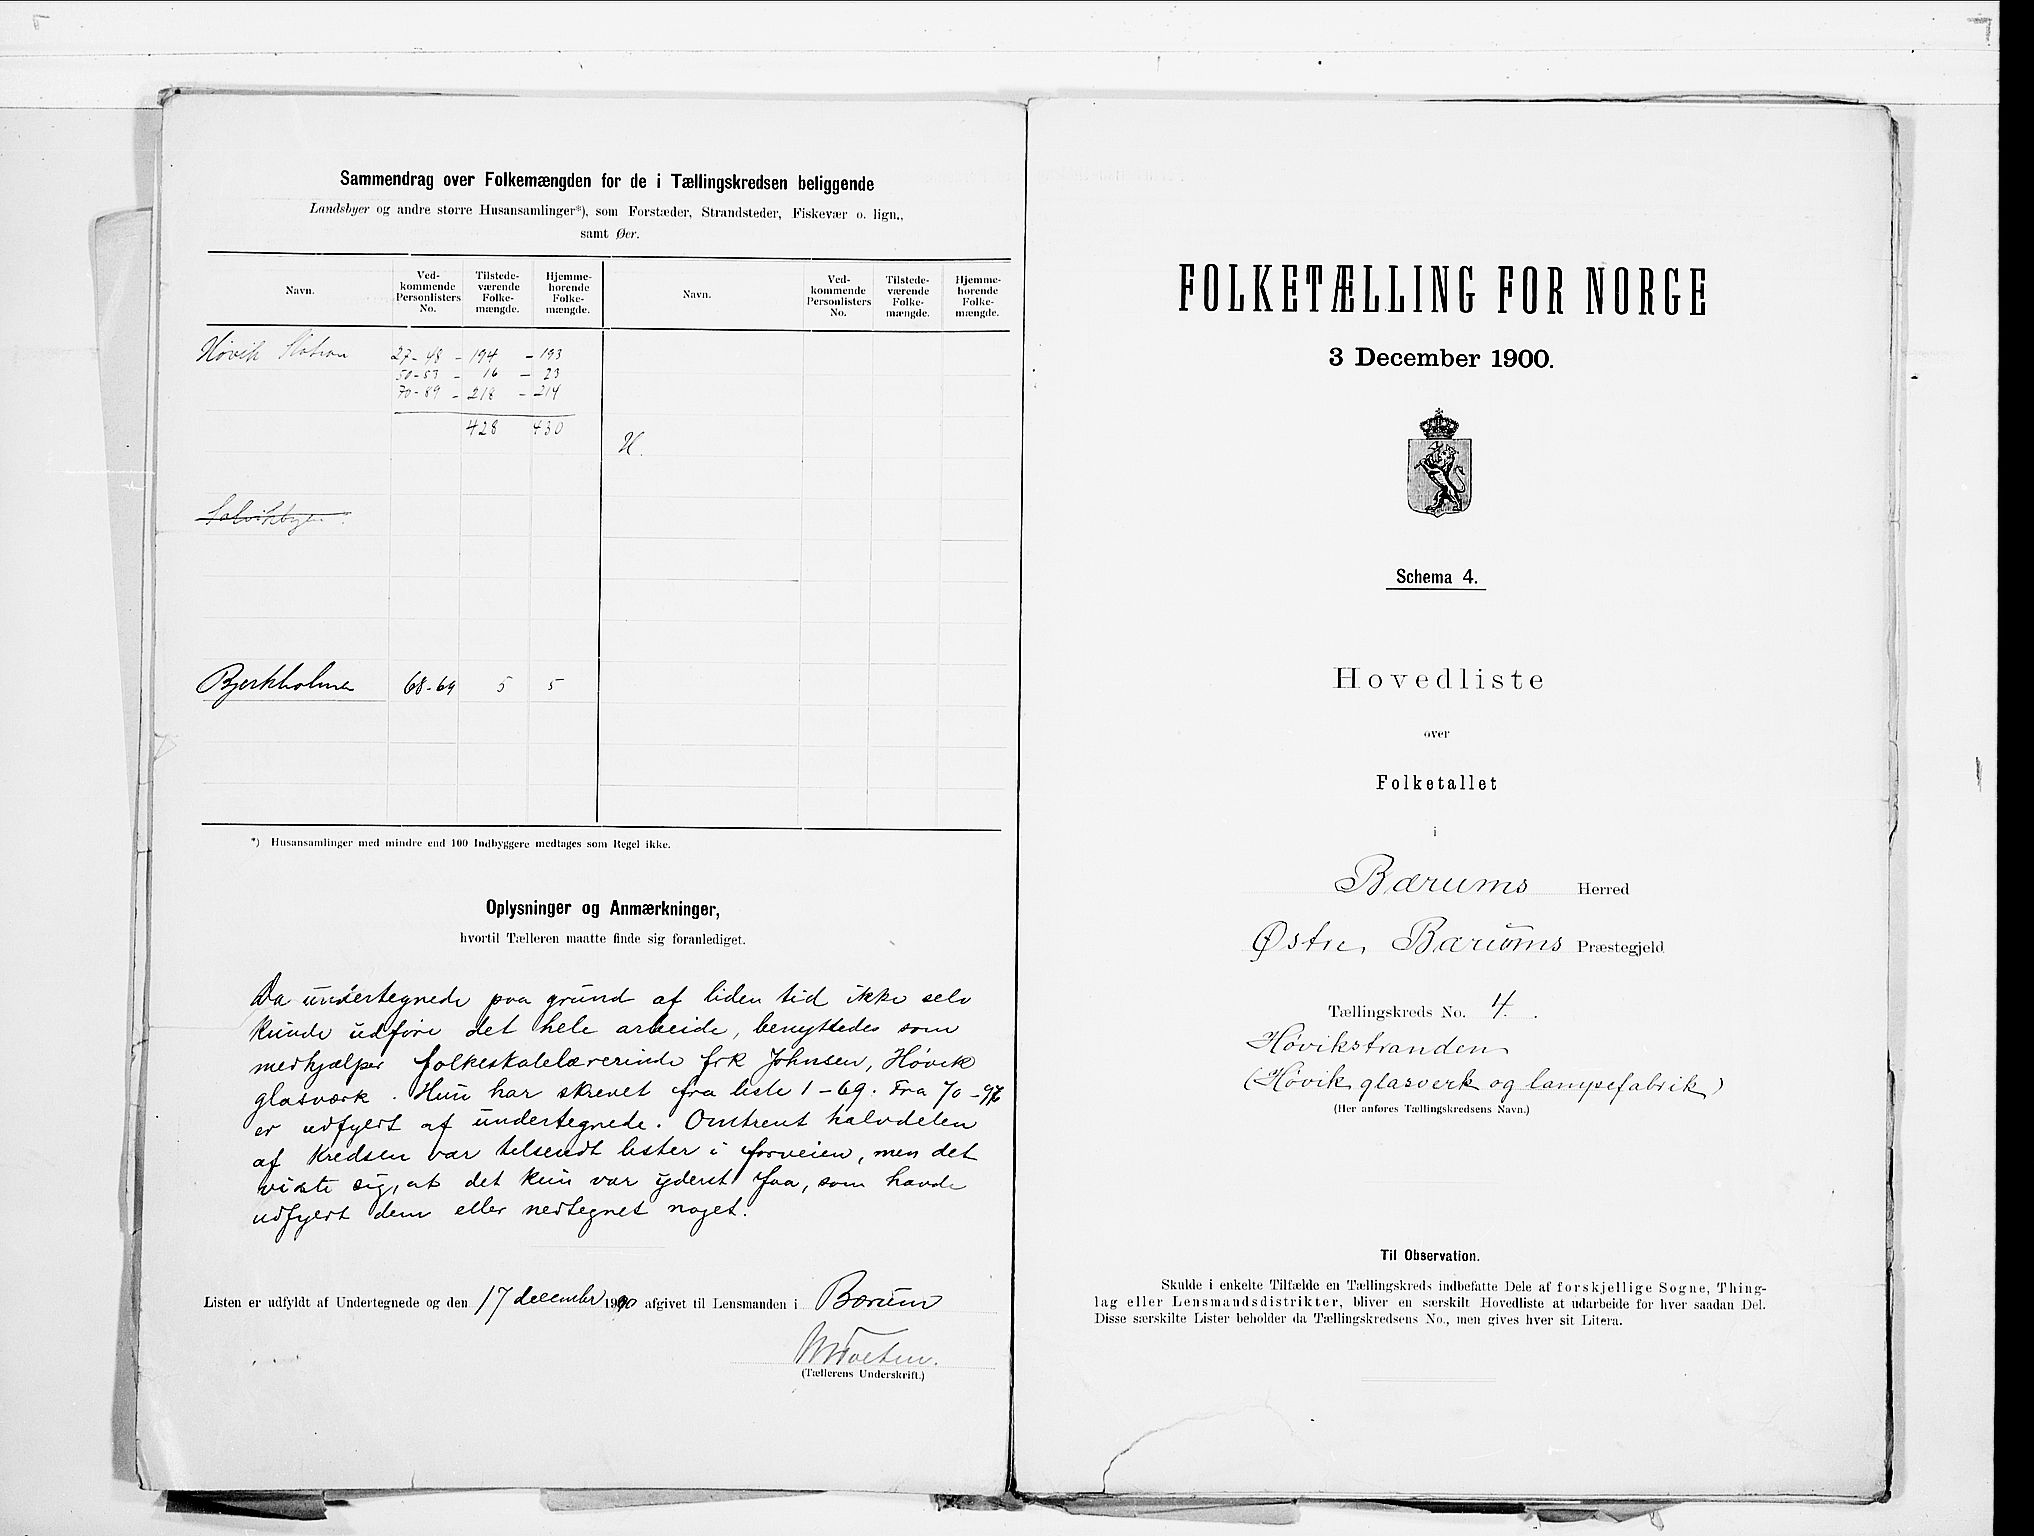 Sammendrag over Folkemængden for de i Tællingskredsen beliggende
Landsbyer og andre større Husansamlinger*), som Forstæder, Strandsteder, Fiskevær o. lign.,
samt Øer.
Navn. Ved-kommende Personlisters No. Tilstede-værende Folke-mængde. Hjemme-hørende Folke-mængde. Navn. Ved-kommende Personlisters No. Tilstede-værende Folke-mængde. Hjemme-hørende Folke-mængde.
Høvik Station 27-48 - 194 - 193
50-53 - 16 - 23
70-89 - 218 - 214
428 430
H.
Solvikbyen
Bjerkholmen 68-69 5 5
*) Husansamlinger med mindre end 100 Indbyggere medtages som Regel ikke.
Oplysninger og Anmærkninger,
hvortil Tælleren maatte finde sig foranlediget.
Da undertegnede paa grund af liden tid ikke selv
kunde udføre det hele arbeide, benyttedes som
medhjælper folkeskolelærerinde frk Johnsen, Høvik
glasværk. Hun har skrevet fra liste 1-69. Fra 70-96
er udfyldt af undertegnede. Omtrent halvdelen
af Kredsen var tilsendt lister i forveien, men det
viste sig, at det kun var yderst faa, som havde
udfyldt dem eller nedtegnet noget.
Listen er udfyldt af Undertegnede og den 17 december 1900 afgivet til Lensmanden i Bærum
(Tællerens Underskrift.)
FOLKETÆLLING FOR NORGE
3 December 1900.
Schema 4.
Hovedliste
over
Folketallet
i
Bærums Herred
Østre Bærums Præstegjeld
Tællingskreds No. 4.
Høvikstranden
(Høvik glasverk og lampefabrik)
(Her anføres Tællingskredsens Navn.)
Til Observation.
Skulde i enkelte Tilfælde en Tællingskreds indbefatte Dele af forskjellige Sogne, Thing-
lag eller Lensmandsdistrikter, bliver en særskilt Hovedliste at udarbeide for hver saadan Del.
Disse særskilte Lister beholder da Tællingskredsens No., men gives hver sit Litera.